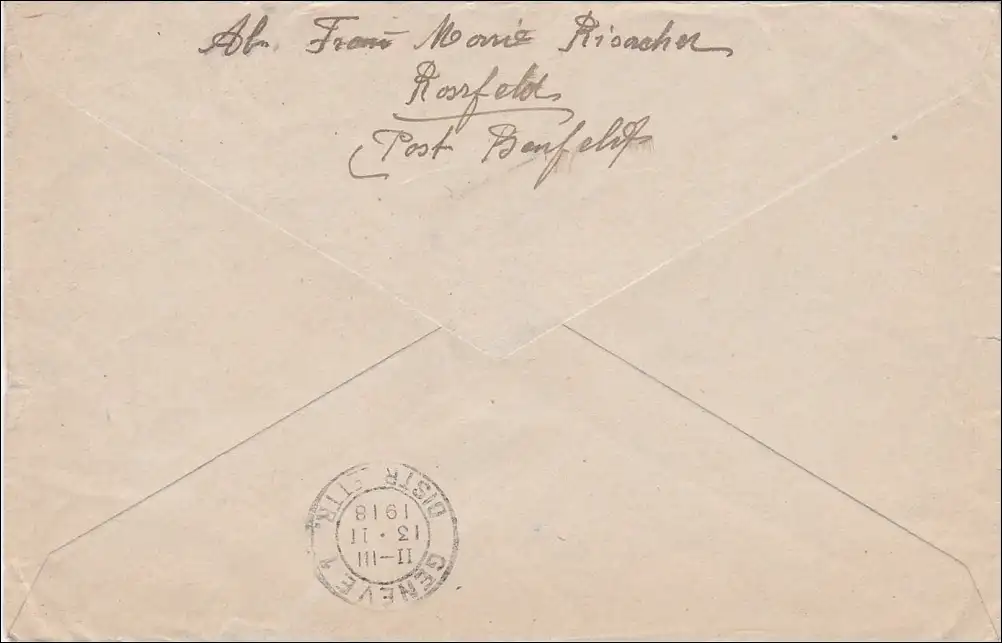 Ab. Frau Marie Risacher
Rossfeld
(Post Benfeld)
GENÈVE 1
II-III
13.II
1918
DISTR. LETTR.